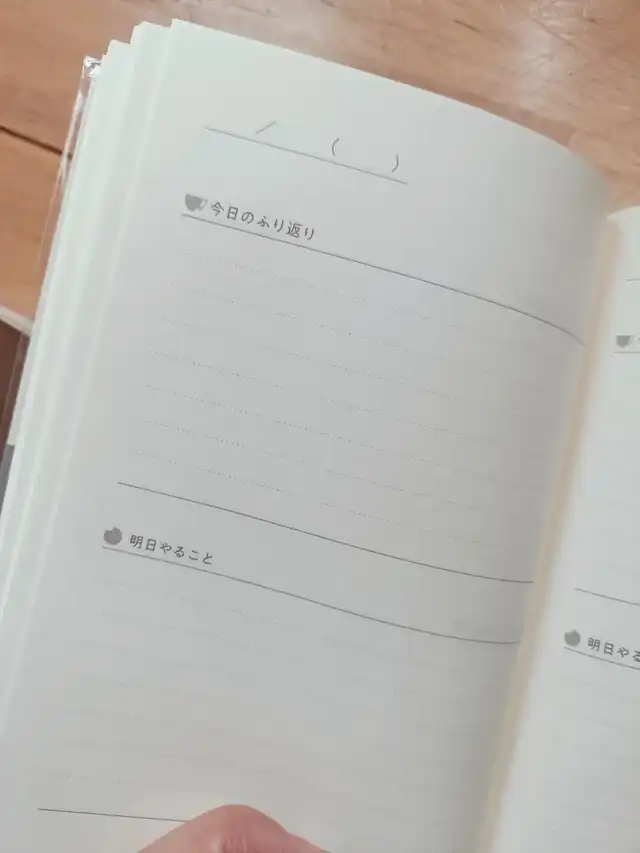 / ( )
今日のふり返り
明日やること
明日や